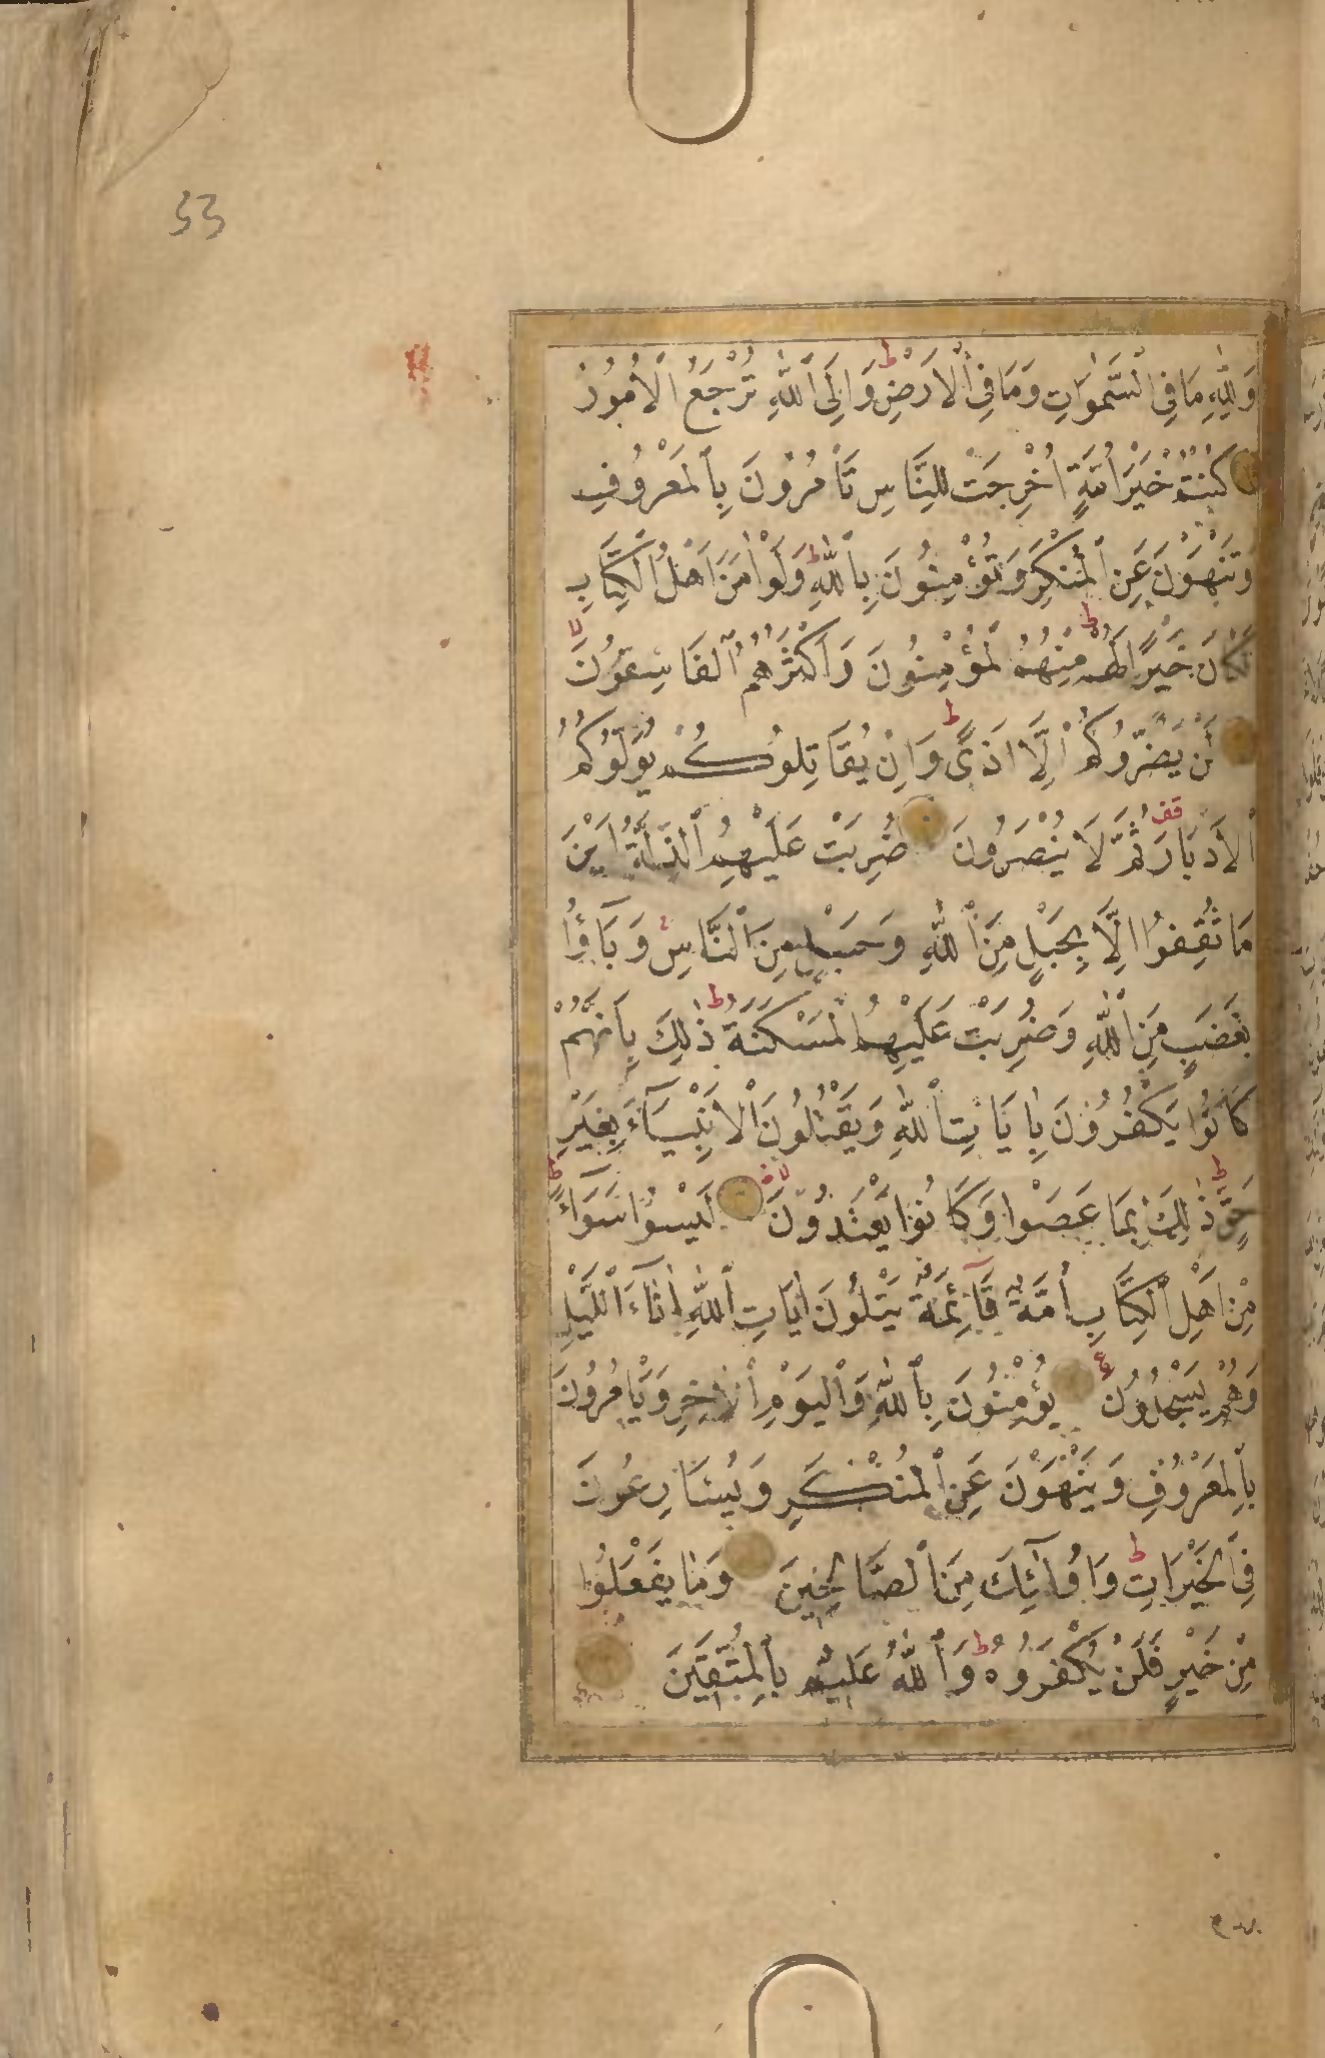 33
وَلِلّٰهِ مَا فِي السَّمٰوَاتِ وَمَا فِي الْاَرْضِ ط وَاِلَى اللّٰهِ تُرْجَعُ الْاُمُورُ
كُنْتُمْ خَيْرَ اُمَّةٍ اُخْرِجَتْ لِلنَّاسِ تَاْمُرُونَ بِالْمَعْرُوفِ
وَتَنْهَوْنَ عَنِ الْمُنْكَرِ وَتُؤْمِنُونَ بِاللّٰهِ ط وَلَوْ اٰمَنَ اَهْلُ الْكِتَابِ
لَكَانَ خَيْرًا لَهُمْ ط مِنْهُمُ الْمُؤْمِنُونَ وَاَكْثَرُهُمُ الْفَاسِقُونَ لا
لَنْ يَضُرُّوكُمْ اِلَّا اَذًى ط وَاِنْ يُقَاتِلُوكُمْ يُوَلُّوكُمُ
الْاَدْبَارَ قف ثُمَّ لَا يُنْصَرُونَ ضُرِبَتْ عَلَيْهِمُ الذِّلَّةُ اَيْنَ
مَا ثُقِفُوا اِلَّا بِحَبْلٍ مِنَ اللّٰهِ وَحَبْلٍ مِنَ النَّاسِ وَبَآؤُا
بِغَضَبٍ مِنَ اللّٰهِ وَضُرِبَتْ عَلَيْهِمُ الْمَسْكَنَةُ ط ذٰلِكَ بِاَنَّهُمْ
كَانُوا يَكْفُرُونَ بِاٰيَاتِ اللّٰهِ وَيَقْتُلُونَ الْاَنْبِيَآءَ بِغَيْرِ
حَقٍّ ط ذٰلِكَ بِمَا عَصَوْا وَكَانُوا يَعْتَدُونَ لَيْسُوا سَوَآءً ط
مِنْ اَهْلِ الْكِتَابِ اُمَّةٌ قَآئِمَةٌ يَتْلُونَ اٰيَاتِ اللّٰهِ اٰنَآءَ الَّيْلِ
وَهُمْ يَسْجُدُونَ يُؤْمِنُونَ بِاللّٰهِ وَالْيَوْمِ الْاٰخِرِ وَيَاْمُرُونَ
بِالْمَعْرُوفِ وَيَنْهَوْنَ عَنِ الْمُنْكَرِ وَيُسَارِعُونَ
فِي الْخَيْرَاتِ ط وَاُولٰٓئِكَ مِنَ الصَّالِحِينَ وَمَا يَفْعَلُوا
مِنْ خَيْرٍ فَلَنْ يُكْفَرُوهُ ط وَاللّٰهُ عَلِيمٌ بِالْمُتَّقِينَ